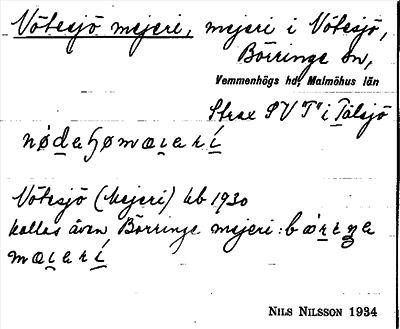 Vötesjö mejeri, mejeri i Vötesjö,
Börringe sn,
Vemmenhögs hd, Malmöhus län
Strax SV "T" i Tälsjö
Vötesjö (Mejeri) kb 1930
kallas även Börringe mejeri:
NILS NILSSON 1934